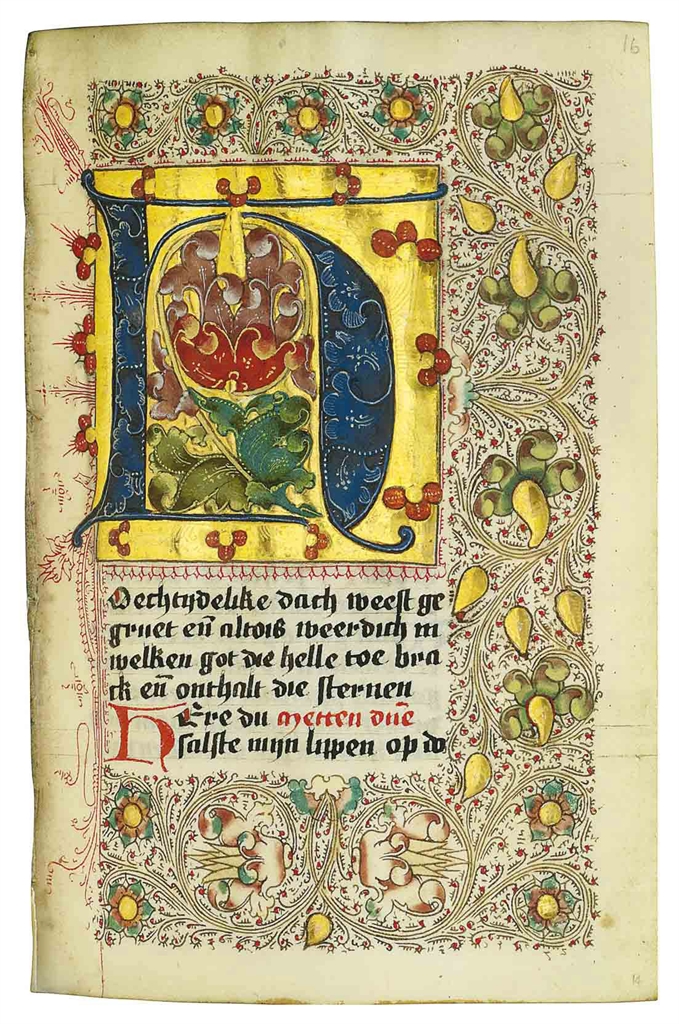 16
HOechtydelike dach weest ge
gruet eñ altois weerdich in
welken got die helle toe bra
ck eñ onthalt die sternen
HEre du metten
salste mijn lippen op do
14